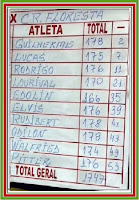 X C.R. FLORESTA
ATLETA TOTAL –
GUILHERME 178 2
LUCAS 175 7
RODRIGO 176 11
LOURIVAL 170 21
LOOLIN 166 35
ELVIS 176 39
RUALBERT 178 41
ODILON 178 43
WALFRIDO 174 49
PITTER 176 53
TOTAL GERAL 1747